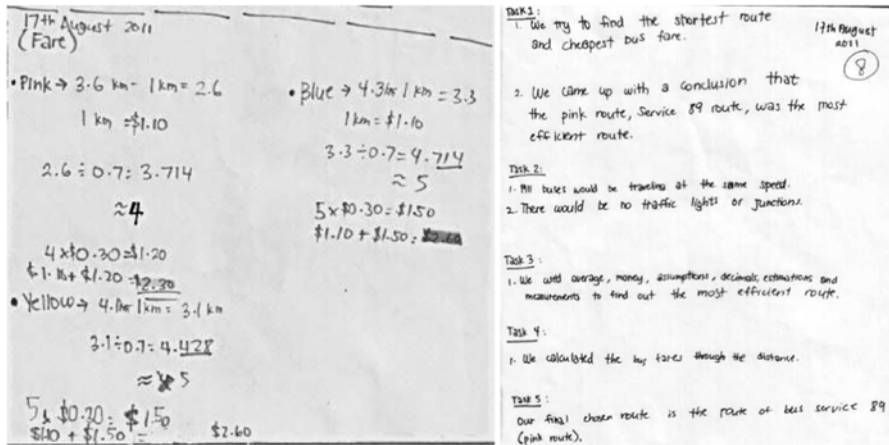 17th August 2011
(Fare)
• Pink → 3.6 km - 1 km = 2.6
1 km = $1.10
2.6 ÷ 0.7 = 3.714
≈ 4
4 x $0.30 = $1.20
$1.10 + $1.20 = $2.30
• Yellow → 4.1km 1km = 3.1 km
3.1 ÷ 0.7 = 4.428
≈ 5
5 x $0.30 = $1.50
$1.10 + $1.50 = $2.60
• Blue → 4.3km 1 km = 3.3
1 km = $1.10
3.3 ÷ 0.7 = 4.714
≈ 5
5 x $0.30 = $1.50
$1.10 + $1.50 =
17th August
2011
8
Task 1:
1. We try to find the shortest route
and cheapest bus fare.
2. We came up with a conclusion that
the pink route, Service 89 route, was the most
efficient route.
Task 2:
1. All buses would be traveling at the same speed.
2. There would be no traffic lights or junctions.
Task 3:
1. We used average, money, assumptions, decimals, estimations and
measurements to find out the most efficient route.
Task 4:
1. We calculated the bus fares through the distance.
Task 5:
Our final chosen route is the route of bus service 89
(pink route).